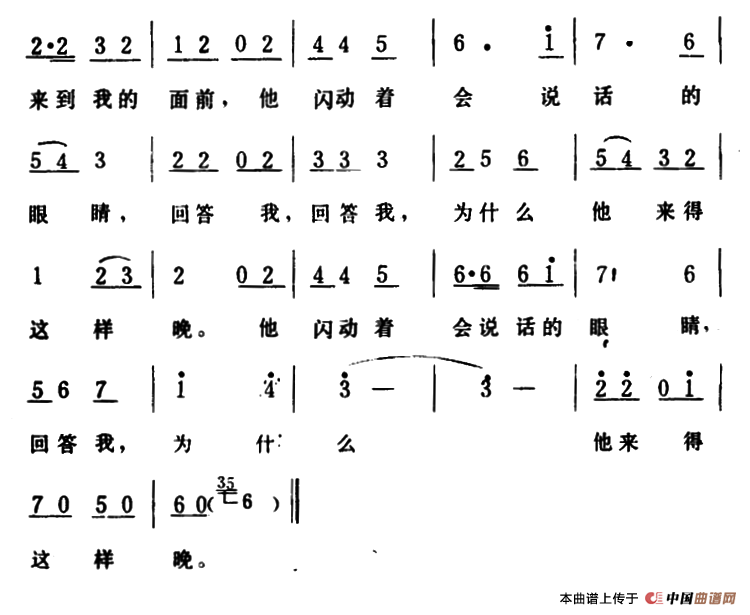 2·2 3 2 | 1 2 0 2 | 4 4 5 | 6· i | 7· 6 |
来到我的 面前，他 闪动着 会 说 话 的
5 4 3 | 2 2 0 2 | 3 3 3 | 2 5 6 | 5 4 3 2 |
眼 睛， 回答 我，回答我， 为什么 他 来得
1 2 3 | 2 0 2 | 4 4 5 | 6·6 6 i | 7 6 |
这 样 晚。 他 闪动着 会说话的 眼 睛，
5 6 7 | i 4 | 3 — | 3 — | 2 2 0 i |
回答我， 为 什 么 他来 得
7 0 5 0 | 6 0 ( 35 6 ) ‖
这 样 晚。
本曲谱上传于 中国曲谱网